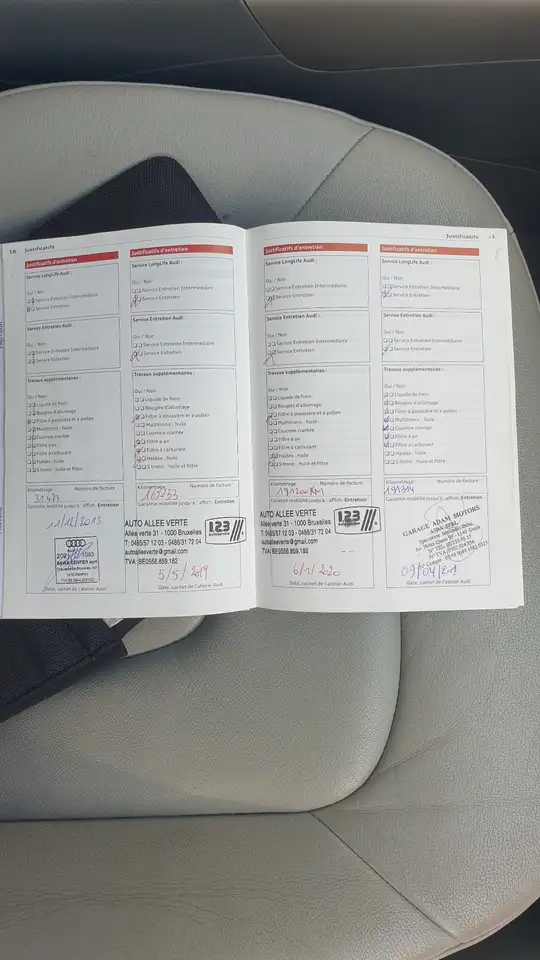 18 Justificatifs
Justificatifs d'entretien
Service LongLife Audi :
Oui / Non
Service Entretien Intermédiaire
Service Entretien
Service Entretien Audi :
Oui / Non
Service Entretien Intermédiaire
Service Entretien
Travaux supplémentaires :
Oui / Non
Liquide de frein
Bougies d'allumage
Filtre à poussière et à pollen
Multitronic : huile
Courroie crantée
Filtre à air
Filtre à carburant
Haldex : huile
S tronic : huile et filtre
Kilométrage : Numéro de facture
Garantie mobilité jusqu'à : affich. Entretien
11/12/2013
Audi
Date, cachet de l'atelier Audi
Justificatifs d'entretien
Service LongLife Audi :
Oui / Non
Service Entretien Intermédiaire
Service Entretien
Service Entretien Audi :
Oui / Non
Service Entretien Intermédiaire
Service Entretien
Travaux supplémentaires :
Oui / Non
Liquide de frein
Bougies d'allumage
Filtre à poussière et à pollen
Multitronic : huile
Courroie crantée
Filtre à air
Filtre à carburant
Haldex : huile
S tronic : huile et filtre
Kilométrage : Numéro de facture
Garantie mobilité jusqu'à : affich. Entretien
AUTO ALLEE VERTE
Allée verte 31 - 1000 Bruxelles
T. 0485/57 12 03 - 0486/31 72 04
autoalleeverte@gmail.com
TVA: BE0556.859.182
123
5/5/2019
Date, cachet de l'atelier Audi
Justificatifs
Justificatifs d'entretien
Service LongLife Audi :
Oui / Non
Service Entretien Intermédiaire
Service Entretien
Service Entretien Audi :
Oui / Non
Service Entretien Intermédiaire
Service Entretien
Travaux supplémentaires :
Oui / Non
Liquide de frein
Bougies d'allumage
Filtre à poussière et à pollen
Multitronic : huile
Courroie crantée
Filtre à air
Filtre à carburant
Haldex : huile
S tronic : huile et filtre
Kilométrage : Numéro de facture
Garantie mobilité jusqu'à : affich. Entretien
AUTO ALLEE VERTE
Allée verte 31 - 1000 Bruxelles
T. 0485/57 12 03 - 0486/31 72 04
autoalleeverte@gmail.com
TVA: BE0556.859.182
123
6/1/2020
Date, cachet de l'atelier Audi
Justificatifs d'entretien
Service LongLife Audi :
Oui / Non
Service Entretien Intermédiaire
Service Entretien
Service Entretien Audi :
Oui / Non
Service Entretien Intermédiaire
Service Entretien
Travaux supplémentaires :
Oui / Non
Liquide de frein
Bougies d'allumage
Filtre à poussière et à pollen
Multitronic : huile
Courroie crantée
Filtre à air
Filtre à carburant
Haldex : huile
S tronic : huile et filtre
Kilométrage : Numéro de facture
191314
Garantie mobilité jusqu'à : affich. Entretien
GARAGE ADAM MOTORS
09/04/21
Date, cachet de l'atelier Audi